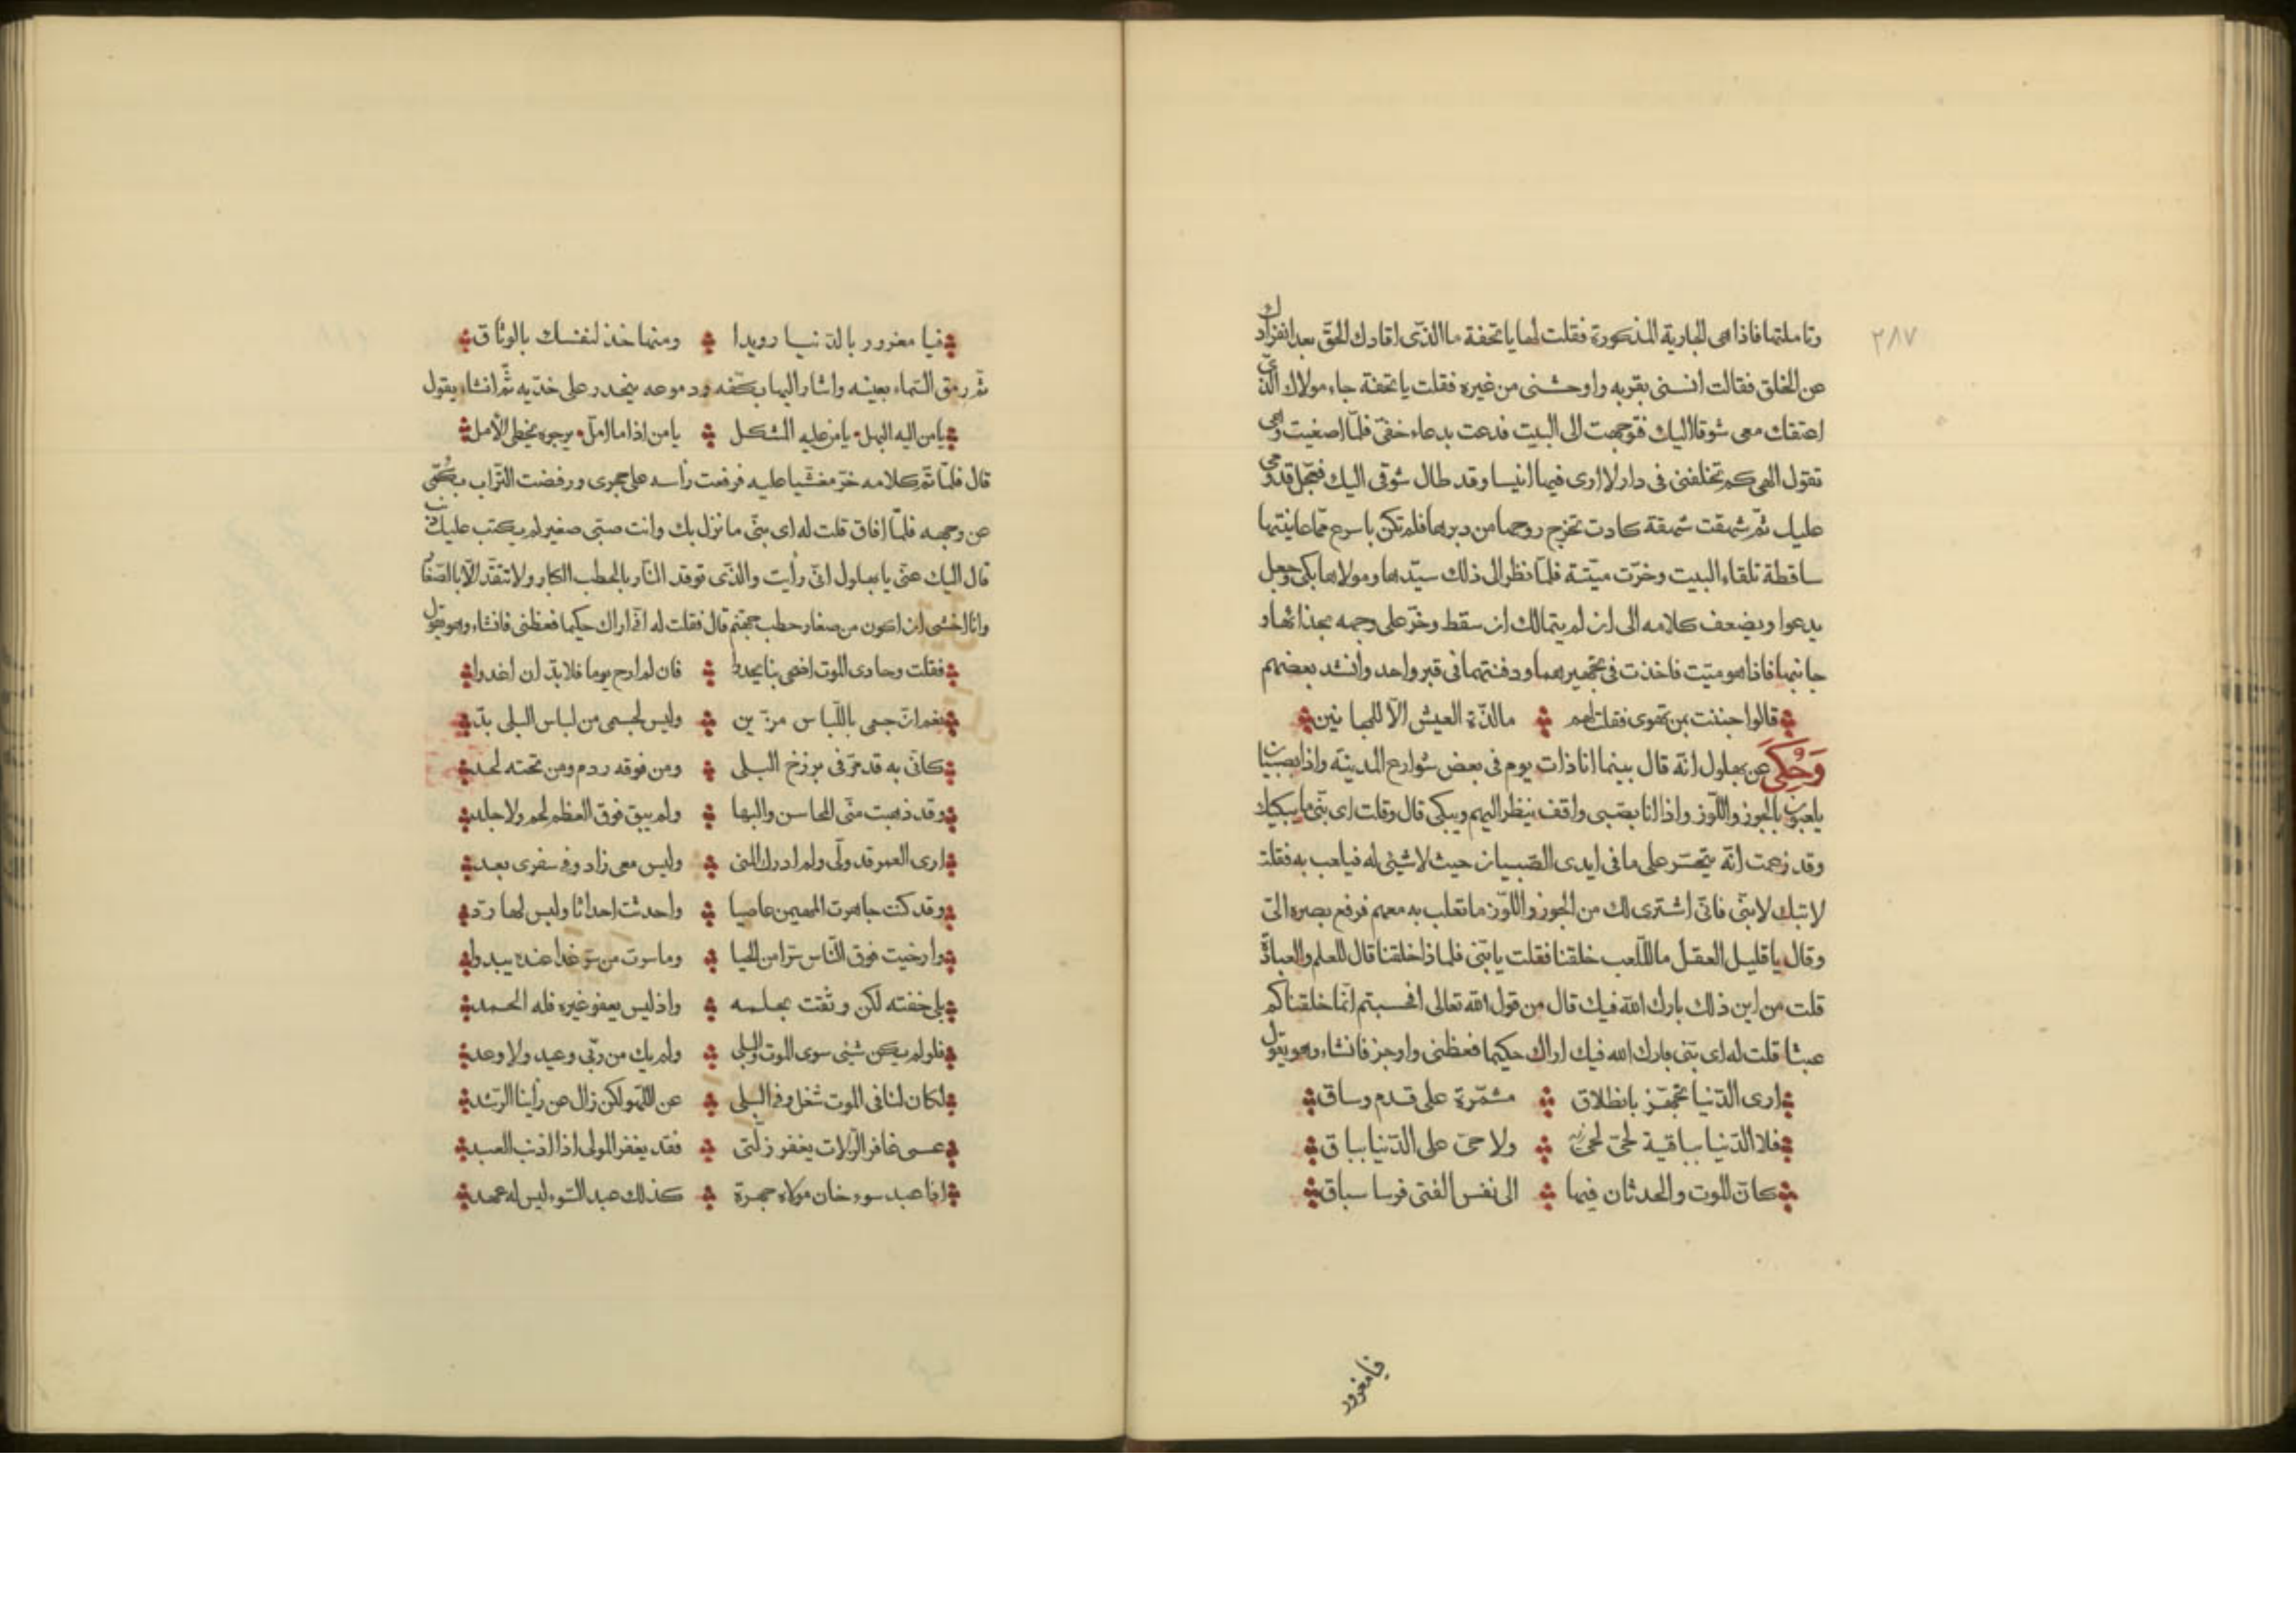 ٢٨٧
وتاملتها فاذا هى الجارية المذكورة فقلت لها يا تحفة ما الذى افادك الحق بعد انفرادك
عن الخلق فقالت انسنى بقربه واوحشنى من غيره فقلت يا تحفة جاء مولاك الذى
اعتقك معى شوقا اليك فتوجهت الى البيت فدعت بدعاء خفى فلما اصغيت وهى
تقول الهى كم تخلفنى فى دار لا ارى فيها انيسا وقد طال شوقى اليك فعجل قدومى
عليك ثم شهقت شهقة كادت تخرج روحها من دبرها فلم تكن باسرع مما عاينتها
ساقطة تلقاء البيت وخرت ميتة فلما نظر الى ذلك سيدها ومولاها بكى وجعل
يدعوا ويضعف كلامه الى ان لم يتمالك ان سقط وخر على وجهه بحذائها و
جانبها فاذا هو ميت فاخذت فى تجهيرهما ودفنتهما فى قبر واحد وانشد بعضهم
قالوا جننت بمن تهوى فقلت لهم مالذة العيش الا للمجانين
وحكى عن بهلول انه قال بينما انا ذات يوم فى بعض شوارع المدينة واذا بصبيان
يلعبون بالجوز واللوز واذا انا بصبى واقف ينظر اليهم ويبكى قال وقلت اى بنى ما يبكيك
وقد زعمت انه يتحسر على ما فى ايدى الصبيان حيث لا شيئ له فيلعب به فقلت
لا تبك لا بنى فانى اشترى لك من الجوز واللوز ما تعلب به معهم فرفع بصره الى
وقال يا قليل العقل ما للعب خلقنا فقلت يا بنى فلماذا خلقنا قال للعلم والعبادة
قلت من اين ذلك بارك الله فيك قال من قول الله تعالى افحسبتم انما خلقناكم
عبثا قلت له اى بنى بارك الله فيك اراك حكيما فعظنى واوجز فانشاء وهو يقول
ارى الدنيا تجهز بانطلاق مشمرة على قدم وساق
فلا الدنيا بباقية لحى ولا حى على الدنيا بباق
كان الموت والحدثان فيها الى نفس الفتى فرسا سباق
فيا مغرور
فيا مغرور بالدنيا رويدا ومنها خذ لنفسك بالوثاق
ثم رمق السماء بعينه واشار اليها بكفه ودموعه ينحدر على خديه ثم انشاء يقول
يا من اليه المبتهل يا من عليه المتكل يا من اذا ما امل يرجوه يخطى الامل
قال فلما تم كلامه خر مغشيا عليه فرفعت رأسه على حجرى ورفضت التراب بكمى
عن وجهه فلما افاق قلت له اى بنى ما نزل بك وانت صبى صغير لم يكتب عليك ذنب
قال اليك عنى يا بهلول انى رأيت والدتى توقد النار بالحطب الكبار ولا تتقد الا بالصغار
وانا اخشى ان اكون من صغار حطب جهنم قال فقلت له انى اراك حكيما فعظنى فانشاء وهو يقول
فقلت وحادى الموت اضحى بنا يحدوا فان لم ارح يوما فلا بد ان اغدوا
نعم ان جسمى باللباس مزين وليس لجسمى من لباس البلى بد
كانى به قد مر فى برزخ البلى ومن فوقه ردم ومن تحته لحد
وقد ذهبت منى المحاسن والبها ولم يبق فوق العظم لحم ولا جلد
ارى العمر قد ولى ولم ادرك المنى وليس معى زاد وفى سفرى بعد
وقد كنت جاهرت المهيمن عاصيا واحدثت احداثا وليس لها رد
وارخيت فوق الناس سترا من الحيا وما سرت من سر غدا عنده يبدوا
بلى خفته لكن وثقت بحلمه واذ ليس يعفو غيره فله الحمد
فلو لم يكن شيئ سوى الموت والبلى ولم يك من ربى وعيد ولا وعد
لكان لنا فى الموت شغل وفى البلى عن اللهو لكن زال عن رأينا الرشد
عسى غافر الزلات يغفر زلتى فقد يغفر المولى اذا اذنب العبد
انا عبد سوء خان مولاه جهرة كذلك عبد السوء ليس له عهد